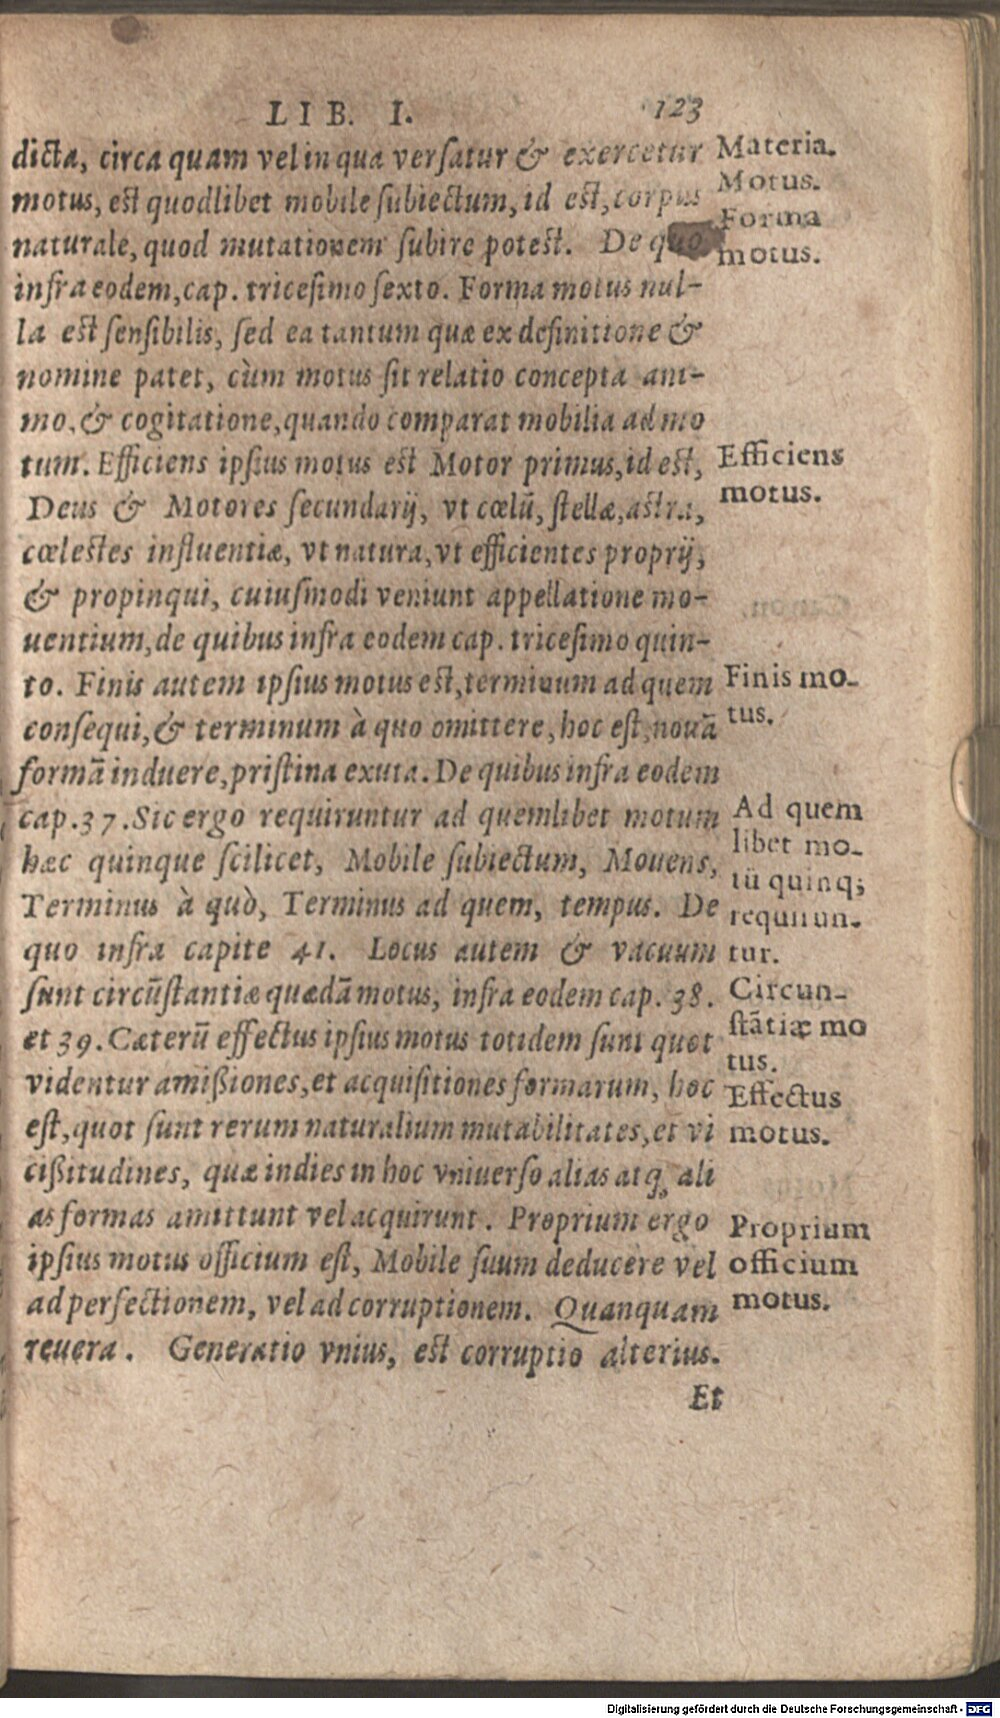 LIB. I. 123
dicta, circa quam vel in qua versatur & exercetur
motus, est quodlibet mobile subiectum, id est, corpus
naturale, quod mutationem subire potest. De quo
infra eodem, cap. tricesimo sexto. Forma motus nul-
la est sensibilis, sed ea tantum quæ ex definitione &
nomine patet, cùm motus sit relatio concepta ani-
mo, & cogitatione, quando comparat mobilia ad mo
tum. Efficiens ipsius motus est Motor primus, id est,
Deus & Motores secundarij, vt cœlũ, stellæ, astra,
cœlestes influentiæ, vt natura, vt efficientes proprij,
& propinqui, cuiusmodi veniunt appellatione mo-
uentium, de quibus infra eodem cap. tricesimo quin-
to. Finis autem ipsius motus est, terminum ad quem
consequi, & terminum à quo omittere, hoc est, nouã
formã induere, pristina exuta. De quibus infra eodem
cap. 37. Sic ergo requiruntur ad quemlibet motum
hæc quinque scilicet, Mobile subiectum, Mouens,
Terminus à quò, Terminus ad quem, tempus. De
quo infra capite 41. Locus autem & vacuum
sunt circũstantiæ quædã motus, infra eodem cap. 38.
et 39. Cæterũ effectus ipsius motus totidem sunt quot
videntur amißiones, et acquisitiones formarum, hoc
est, quot sunt rerum naturalium mutabilitates, et vi
cißitudines, quæ indies in hoc vniuerso alias atq; ali
as formas amittunt vel acquirunt. Proprium ergo
ipsius motus officium est, Mobile suum deducere vel
ad perfectionem, vel ad corruptionem. Quanquam
reuera. Generatio vnius, est corruptio alterius.
Et
Materia.
Motus.
Forma
motus.
Efficiens
motus.
Finis mo-
tus.
Ad quem
libet mo-
tũ quinq;
requirun-
tur.
Circun-
stãtiæ mo
tus.
Effectus
motus.
Proprium
officium
motus.
Digitalisierung gefördert durch die Deutsche Forschungsgemeinschaft - DFG